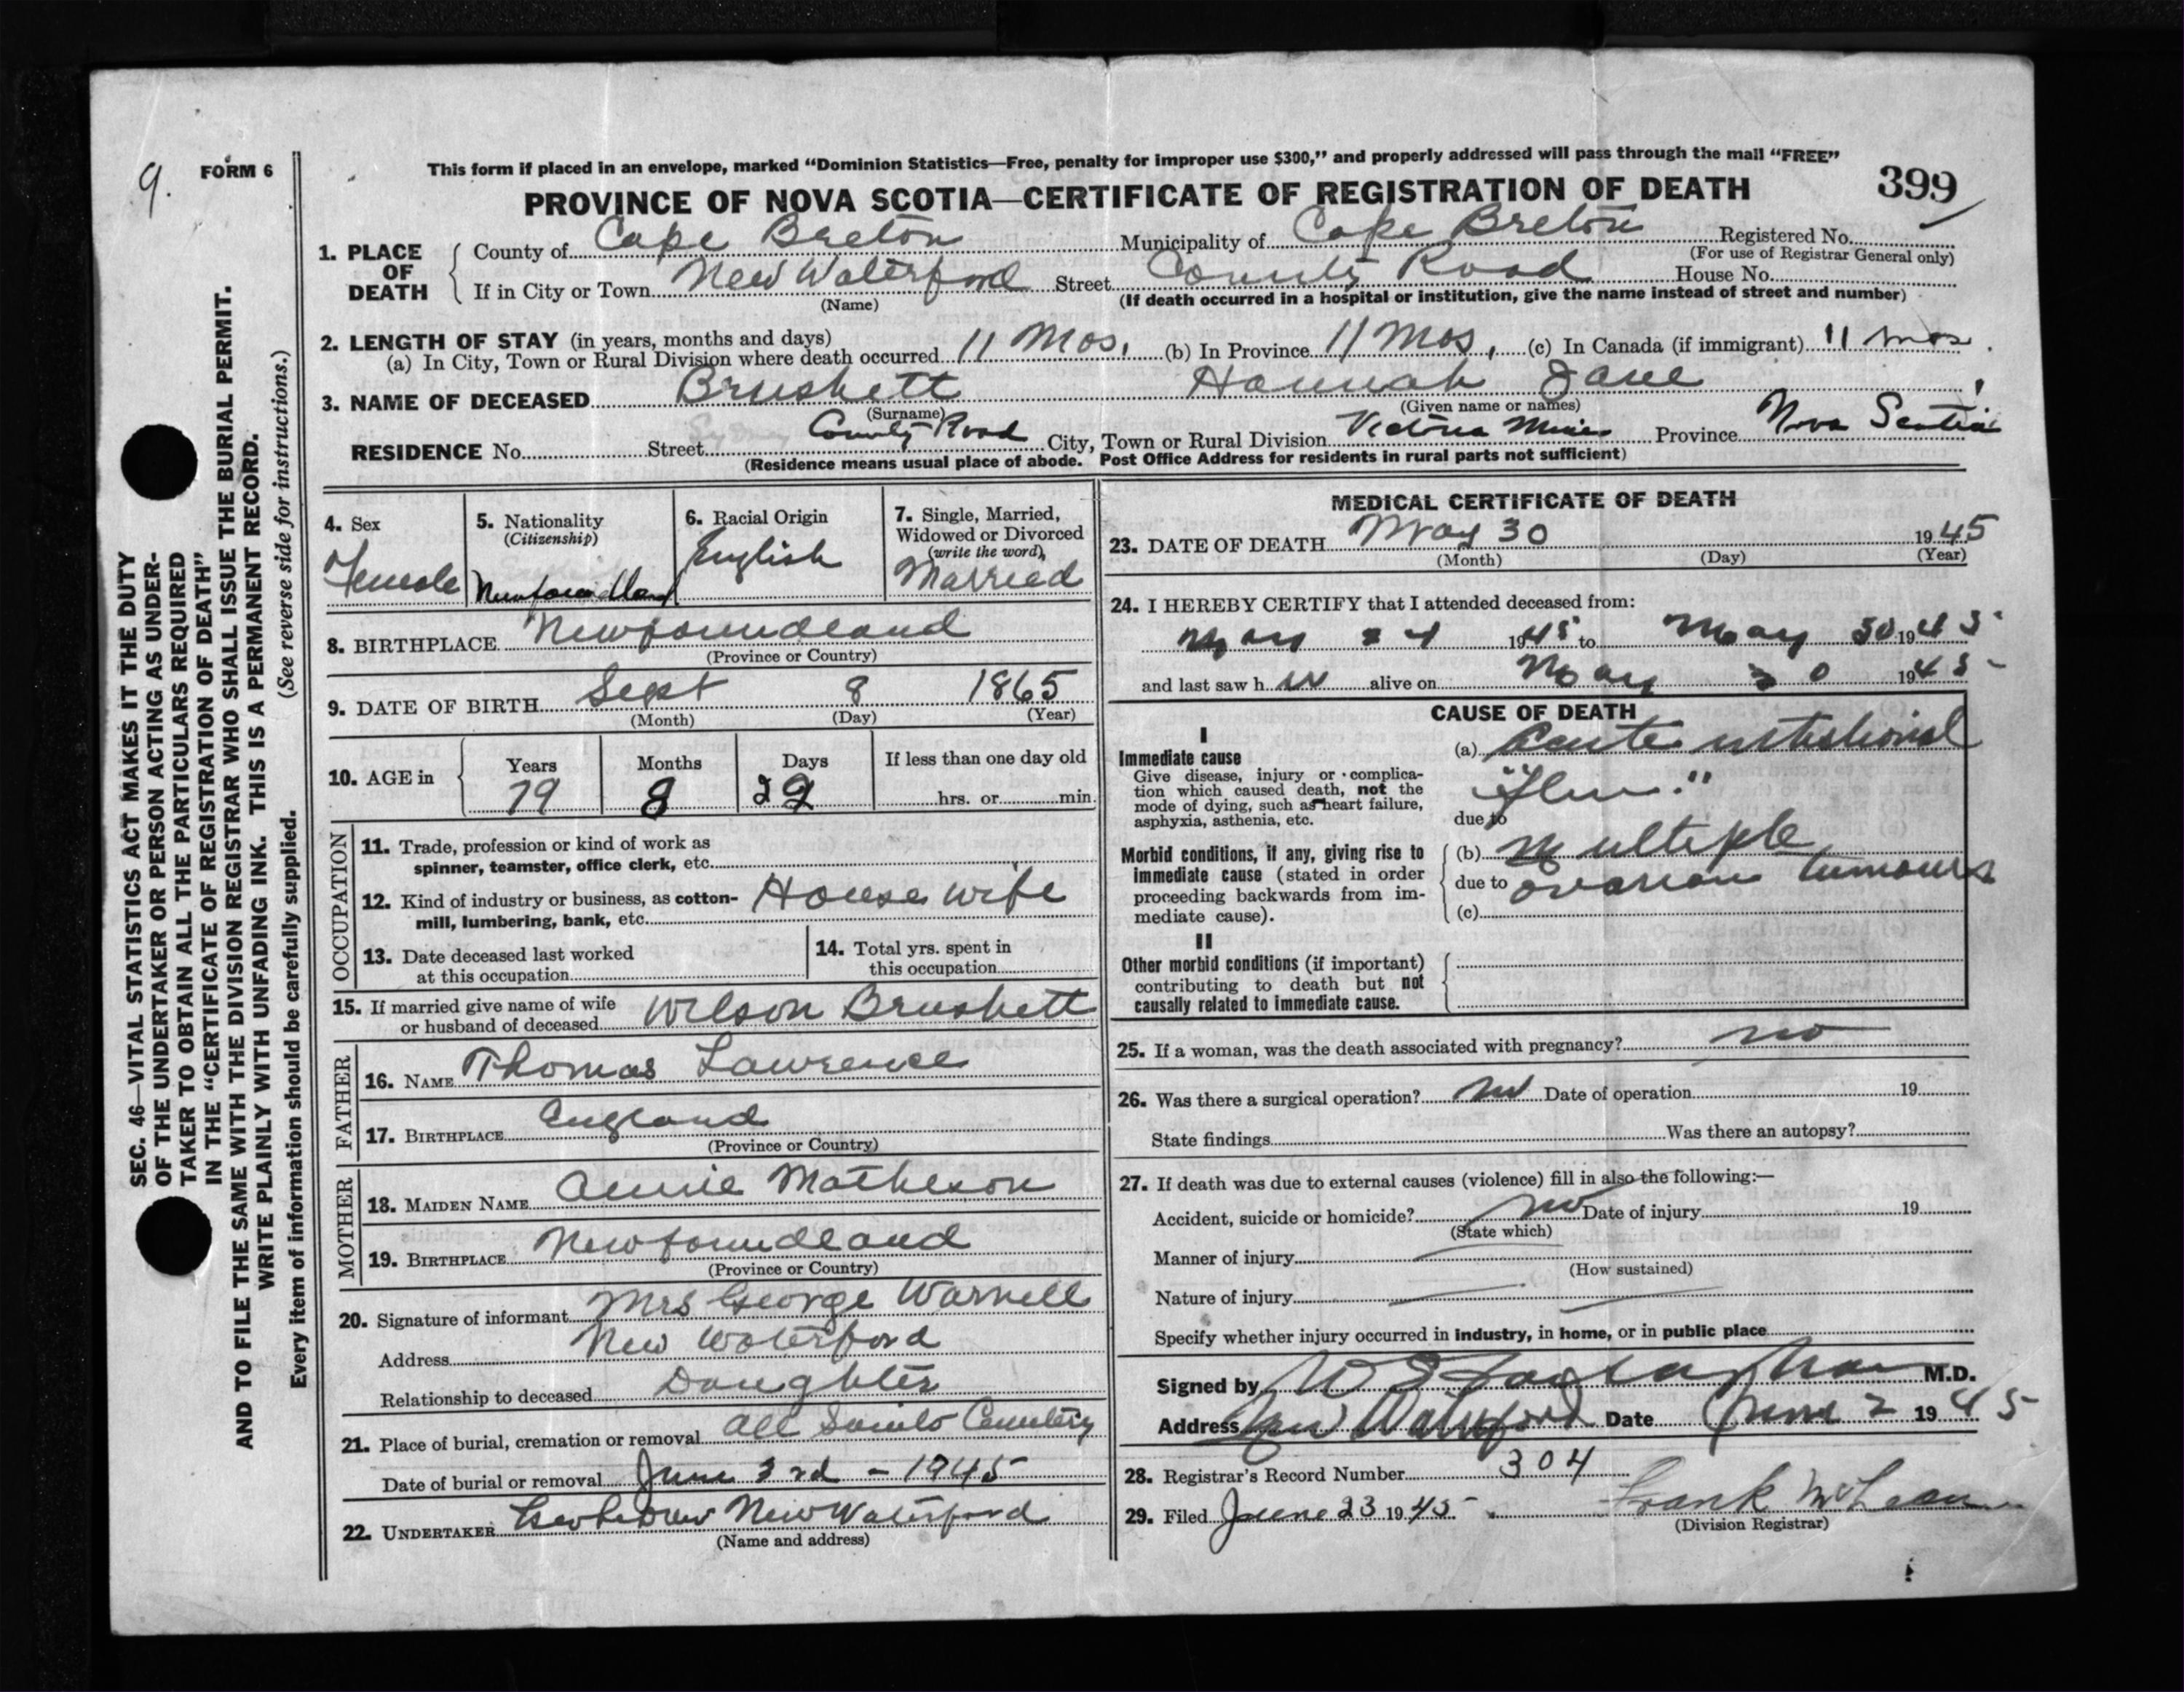 9.
FORM 6
This form if placed in an envelope, marked “Dominion Statistics—Free, penalty for improper use $300,” and properly addressed will pass through the mail “FREE”
PROVINCE OF NOVA SCOTIA—CERTIFICATE OF REGISTRATION OF DEATH
399
1. PLACE OF DEATH
County of Cape Breton Municipality of Cape Breton Registered No.
(For use of Registrar General only)
If in City or Town New Waterford Street County Road House No.
(Name) (If death occurred in a hospital or institution, give the name instead of street and number)
2. LENGTH OF STAY (in years, months and days)
(a) In City, Town or Rural Division where death occurred 11 Mos. (b) In Province 11 Mos. (c) In Canada (if immigrant) 11 mos.
3. NAME OF DECEASED Brushett Hannah Jane
(Surname) (Given name or names)
RESIDENCE No. Street County Road City, Town or Rural Division Victoria Mines Province Nova Scotia
(Residence means usual place of abode. Post Office Address for residents in rural parts not sufficient)
4. Sex
Female
5. Nationality
(Citizenship)
Newfoundland
6. Racial Origin
English
7. Single, Married,
Widowed or Divorced
(write the word)
Married
8. BIRTHPLACE Newfoundland
(Province or Country)
9. DATE OF BIRTH Sept 8 1865
(Month) (Day) (Year)
10. AGE in
Years Months Days If less than one day old
79 8 22 hrs. or min.
OCCUPATION
11. Trade, profession or kind of work as
spinner, teamster, office clerk, etc.
12. Kind of industry or business, as cotton-
mill, lumbering, bank, etc. House wife
13. Date deceased last worked
at this occupation
14. Total yrs. spent in
this occupation
15. If married give name of wife
or husband of deceased Wilson Brushett
FATHER
16. NAME Thomas Lawrence
17. BIRTHPLACE England
(Province or Country)
MOTHER
18. MAIDEN NAME Annie Matheson
19. BIRTHPLACE Newfoundland
(Province or Country)
20. Signature of informant Mrs George Warnell
Address New Waterford
Relationship to deceased Daughter
21. Place of burial, cremation or removal All Saints Cemetery
Date of burial or removal June 3rd - 1945
22. UNDERTAKER New Waterford
(Name and address)
MEDICAL CERTIFICATE OF DEATH
23. DATE OF DEATH May 30 1945
(Month) (Day) (Year)
24. I HEREBY CERTIFY that I attended deceased from:
May 1945 to May 30 1945
and last saw h er alive on May 30 1945
CAUSE OF DEATH
I
Immediate cause
Give disease, injury or complica-
tion which caused death, not the
mode of dying, such as heart failure,
asphyxia, asthenia, etc.
(a) Acute intestional
"Flu."
due to
Morbid conditions, if any, giving rise to
immediate cause (stated in order
proceeding backwards from im-
mediate cause).
(b) Multiple
due to ovarian tumours
(c)
II
Other morbid conditions (if important)
contributing to death but not
causally related to immediate cause.
25. If a woman, was the death associated with pregnancy? no
26. Was there a surgical operation? no Date of operation 19
State findings Was there an autopsy?
27. If death was due to external causes (violence) fill in also the following:—
Accident, suicide or homicide? no Date of injury 19
(State which)
Manner of injury
(How sustained)
Nature of injury
Specify whether injury occurred in industry, in home, or in public place
Signed by M.D.
Address New Waterford Date June 2 1945
28. Registrar's Record Number 304
29. Filed June 23 1945 Frank McLean
(Division Registrar)
SEC. 46—VITAL STATISTICS ACT MAKES IT THE DUTY
OF THE UNDERTAKER OR PERSON ACTING AS UNDER-
TAKER TO OBTAIN ALL THE PARTICULARS REQUIRED
IN THE “CERTIFICATE OF REGISTRATION OF DEATH”
AND TO FILE THE SAME WITH THE DIVISION REGISTRAR WHO SHALL ISSUE THE BURIAL PERMIT.
WRITE PLAINLY WITH UNFADING INK. THIS IS A PERMANENT RECORD.
(See reverse side for instructions.)
Every item of information should be carefully supplied.